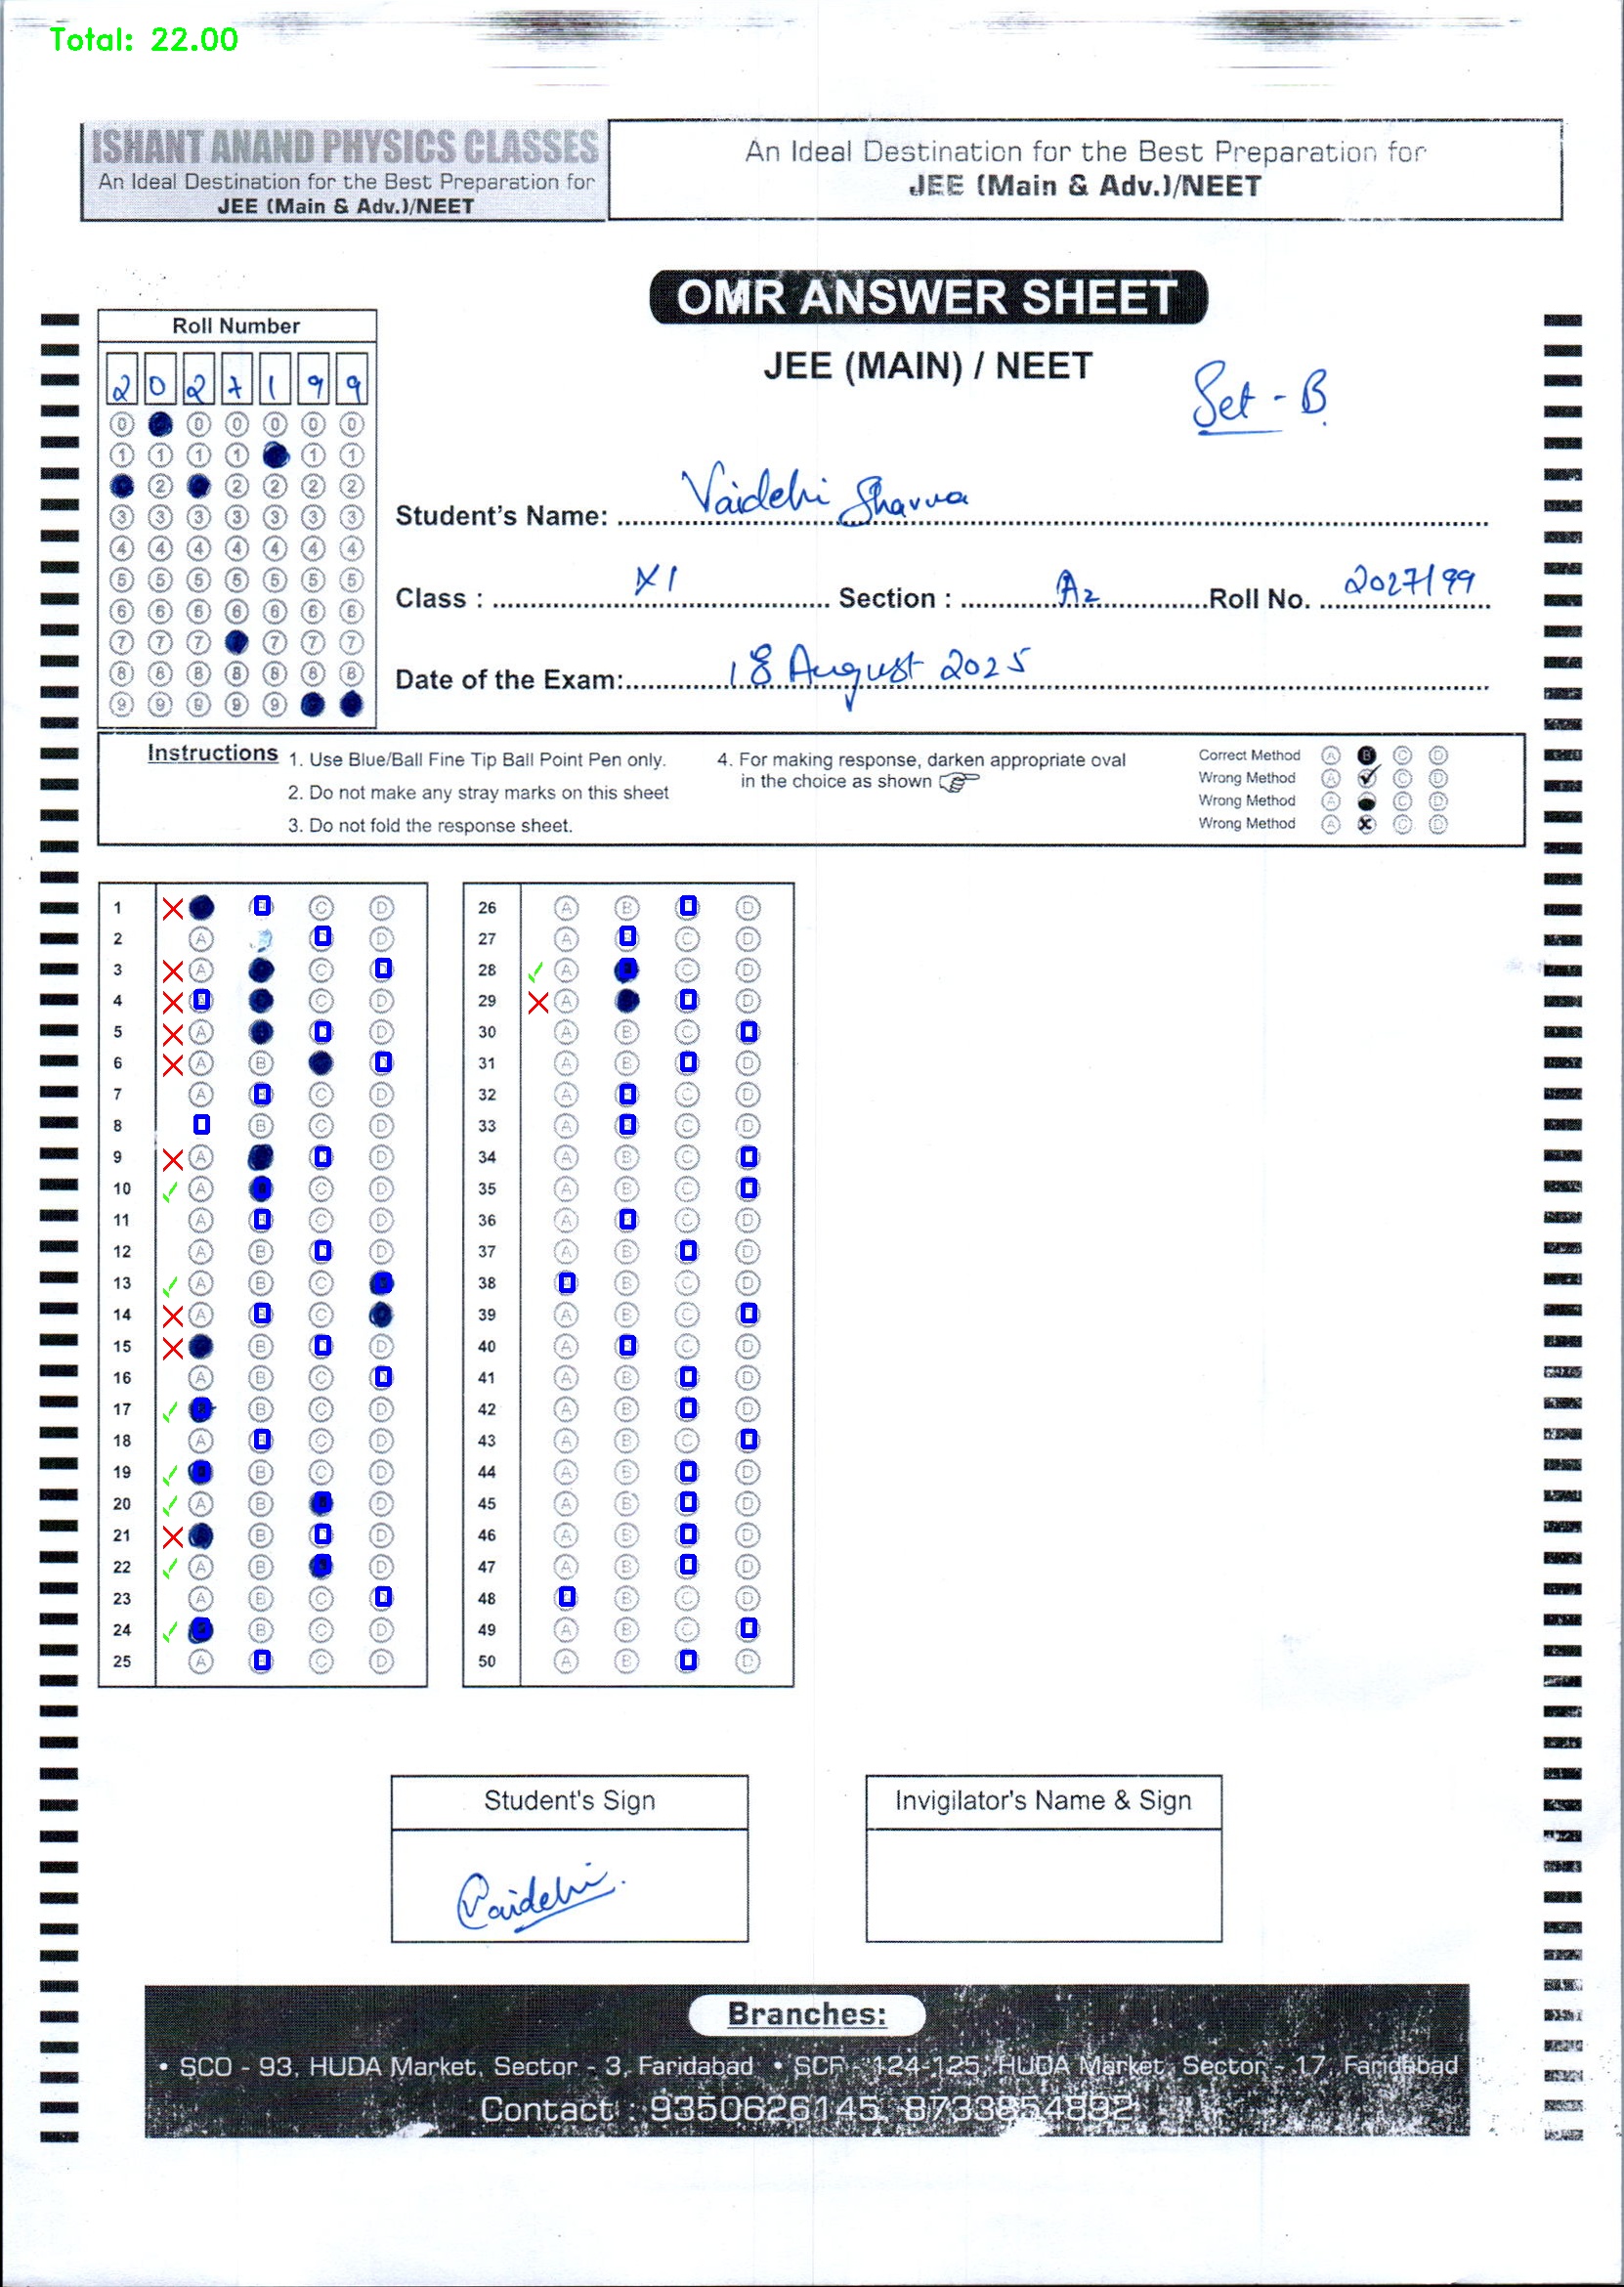 Total: 22.00
ISHANT ANAND PHYSICS CLASSES
An Ideal Destination for the Best Preparation for
JEE (Main & Adv.)/NEET
An Ideal Destination for the Best Preparation for
JEE (Main & Adv.)/NEET
OMR ANSWER SHEET
JEE (MAIN) / NEET
Set - B
Roll Number
2 0 2 7 1 9 9
0 0 0 0 0 0
1 1 1 1 1 1
2 2 2 2 2
3 3 3 3 3 3 3
4 4 4 4 4 4 4
5 5 5 5 5 5 5
6 6 6 6 6 6 6
7 7 7 7 7 7
8 8 8 8 8 8 8
9 9 9 9 9
Student's Name: Vaidehi Sharma
Class : XI Section : A2 Roll No. 2027199
Date of the Exam: 18 August 2025
Instructions
1. Use Blue/Ball Fine Tip Ball Point Pen only.
2. Do not make any stray marks on this sheet
3. Do not fold the response sheet.
4. For making response, darken appropriate oval
in the choice as shown
Correct Method A B C D
Wrong Method A C D
Wrong Method A C D
Wrong Method A C D
1 C D
2 A D
3 A C
4 C D
5 A D
6 A B
7 A C D
8 B C D
9 A D
10 A C D
11 A C D
12 A B D
13 A B C
14 A C
15 B D
16 A B C
17 B C D
18 A C D
19 B C D
20 A B D
21 B D
22 A B D
23 A B C
24 B C D
25 A C D
26 A B D
27 A C D
28 A C D
29 A D
30 A B C
31 A B D
32 A C D
33 A C D
34 A B C
35 A B C
36 A C D
37 A B D
38 B C D
39 A B C
40 A C D
41 A B D
42 A B D
43 A B C
44 A B D
45 A B D
46 A B D
47 A B D
48 B C D
49 A B C
50 A B D
Student's Sign
Vaidehi.
Invigilator's Name & Sign
Branches:
• SCO - 93, HUDA Market, Sector - 3, Faridabad • SCF - 124-125, HUDA Market, Sector - 17, Faridabad
Contact : 9350626145, 8733854892